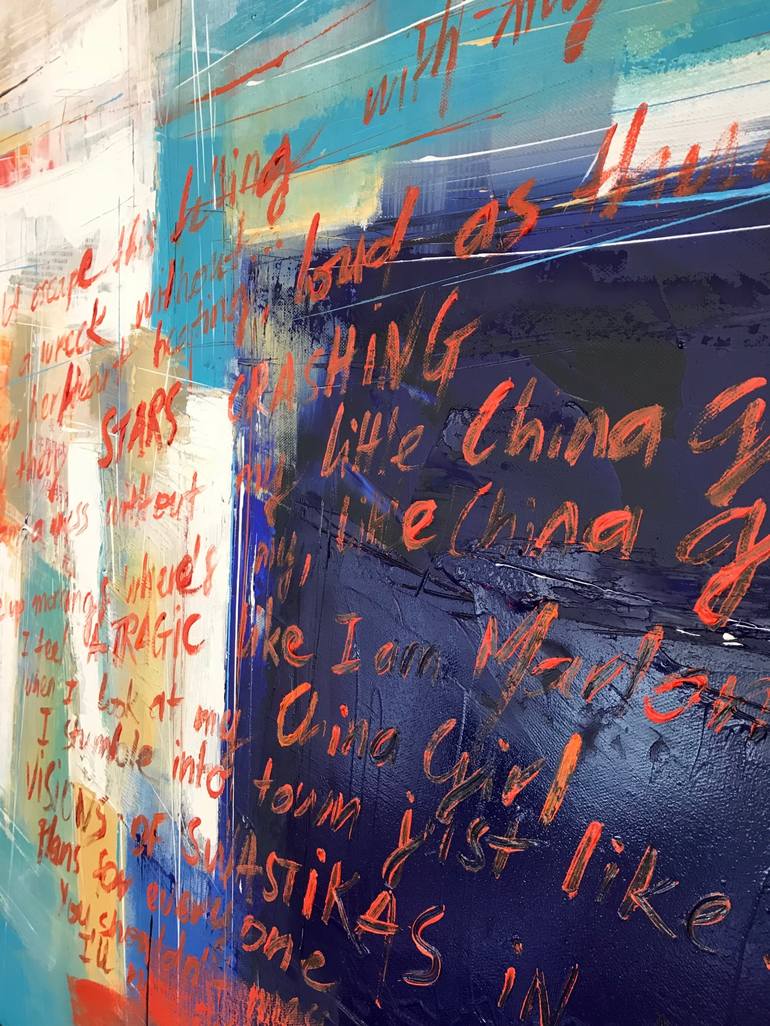 with my
escape this feeling
a wreck without
her heart beating, loud as
they STARS CRASHING
a mess without my little China
my, little China
up mornings where's
I feel A TRAGIC like I am Marlon
when I look at my China Girl
I stumble into town just like
VISIONS OF SWASTIKAS in
Plans for everyone
You shouldn't
I'll